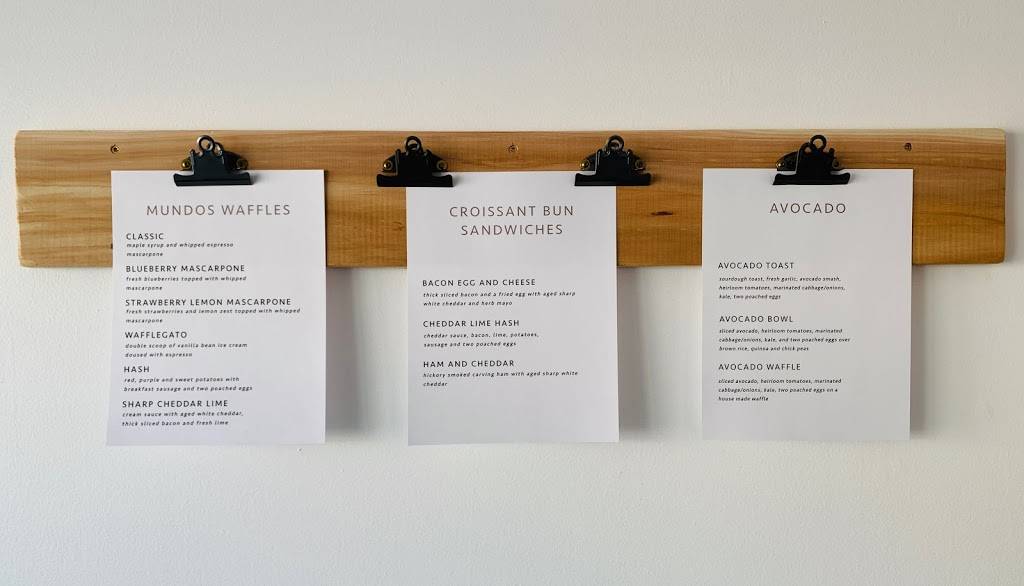 MUNDOS WAFFLES
CLASSIC
maple syrup and whipped espresso
mascarpone
BLUEBERRY MASCARPONE
fresh blueberries topped with whipped
mascarpone
STRAWBERRY LEMON MASCARPONE
fresh strawberries and lemon zest topped with whipped
mascarpone
WAFFLEGATO
double scoop of vanilla bean ice cream
doused with espresso
HASH
red, purple and sweet potatoes with
breakfast sausage and two poached eggs
SHARP CHEDDAR LIME
cream sauce with aged white cheddar,
thick sliced bacon and fresh lime
CROISSANT BUN
SANDWICHES
BACON EGG AND CHEESE
thick sliced bacon and a fried egg with aged sharp
white cheddar and herb mayo
CHEDDAR LIME HASH
cheddar sauce, bacon, lime, potatoes,
sausage and two poached eggs
HAM AND CHEDDAR
hickory smoked carving ham with aged sharp white
cheddar
AVOCADO
AVOCADO TOAST
sourdough toast, fresh garlic, avocado smash,
heirloom tomatoes, marinated cabbage/onions,
kale, two poached eggs
AVOCADO BOWL
sliced avocado, heirloom tomatoes, marinated
cabbage/onions, kale, and two poached eggs over
brown rice, quinoa and chick peas
AVOCADO WAFFLE
sliced avocado, heirloom tomatoes, marinated
cabbage/onions, kale, two poached eggs on a
house made waffle